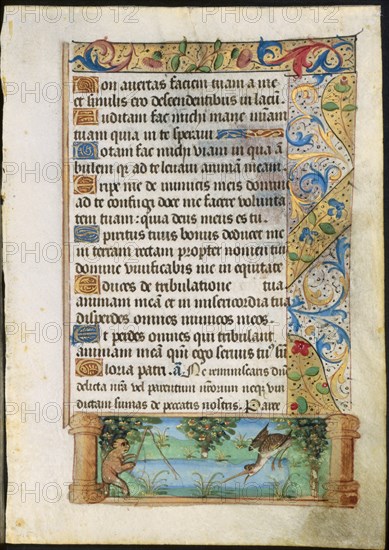 Non avertas faciem tuam a me
et similis ero descendentibus in lacū
Auditam fac michi mane miam
tuam quia in te speravi
Notam fac michi viam in qua am
bulem qr ad te levavi animam meam
Eripe me de inimicis meis domini
ad te confugi doce me facere volunta
tem tuam : quia deus meus es tu
Spiritus tuus bonus deducet me
in terram rectam propter nomen tuū
domine vivificabis me in equitate
Educes de tribulatione tua
animam meā et in misericordia tua
disperdes omnes inimicos meos
Et perdes omnes qui tribulant
animam meā quī ego servus tu
Gloria patri . a. Ne reminiscaris
delicta nrā vel parentum nrorum neqꝫ vin
dictam sumas de peccatis nostris. Parce